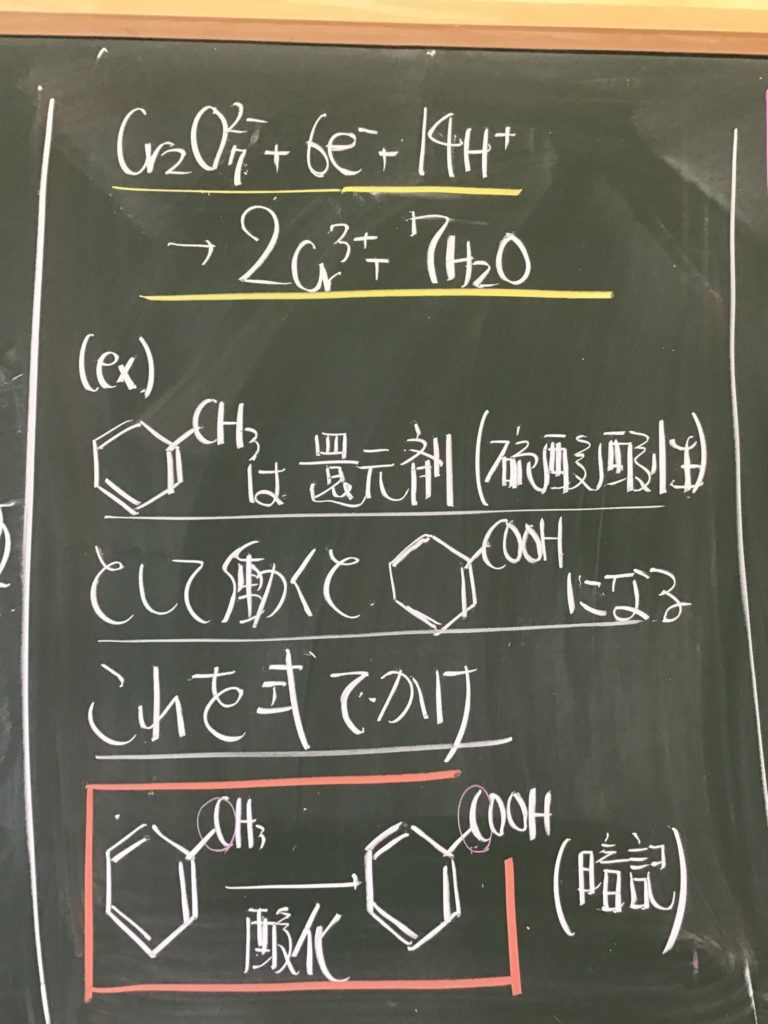 Cr₂O₇²⁻ + 6e⁻ + 14H⁺
→ 2Cr³⁺ + 7H₂O
(ex)
CH₃ は 還元剤 (硫酸酸性)
として働くと COOH になる
これを式でかけ
CH₃ COOH
酸化 (暗記)